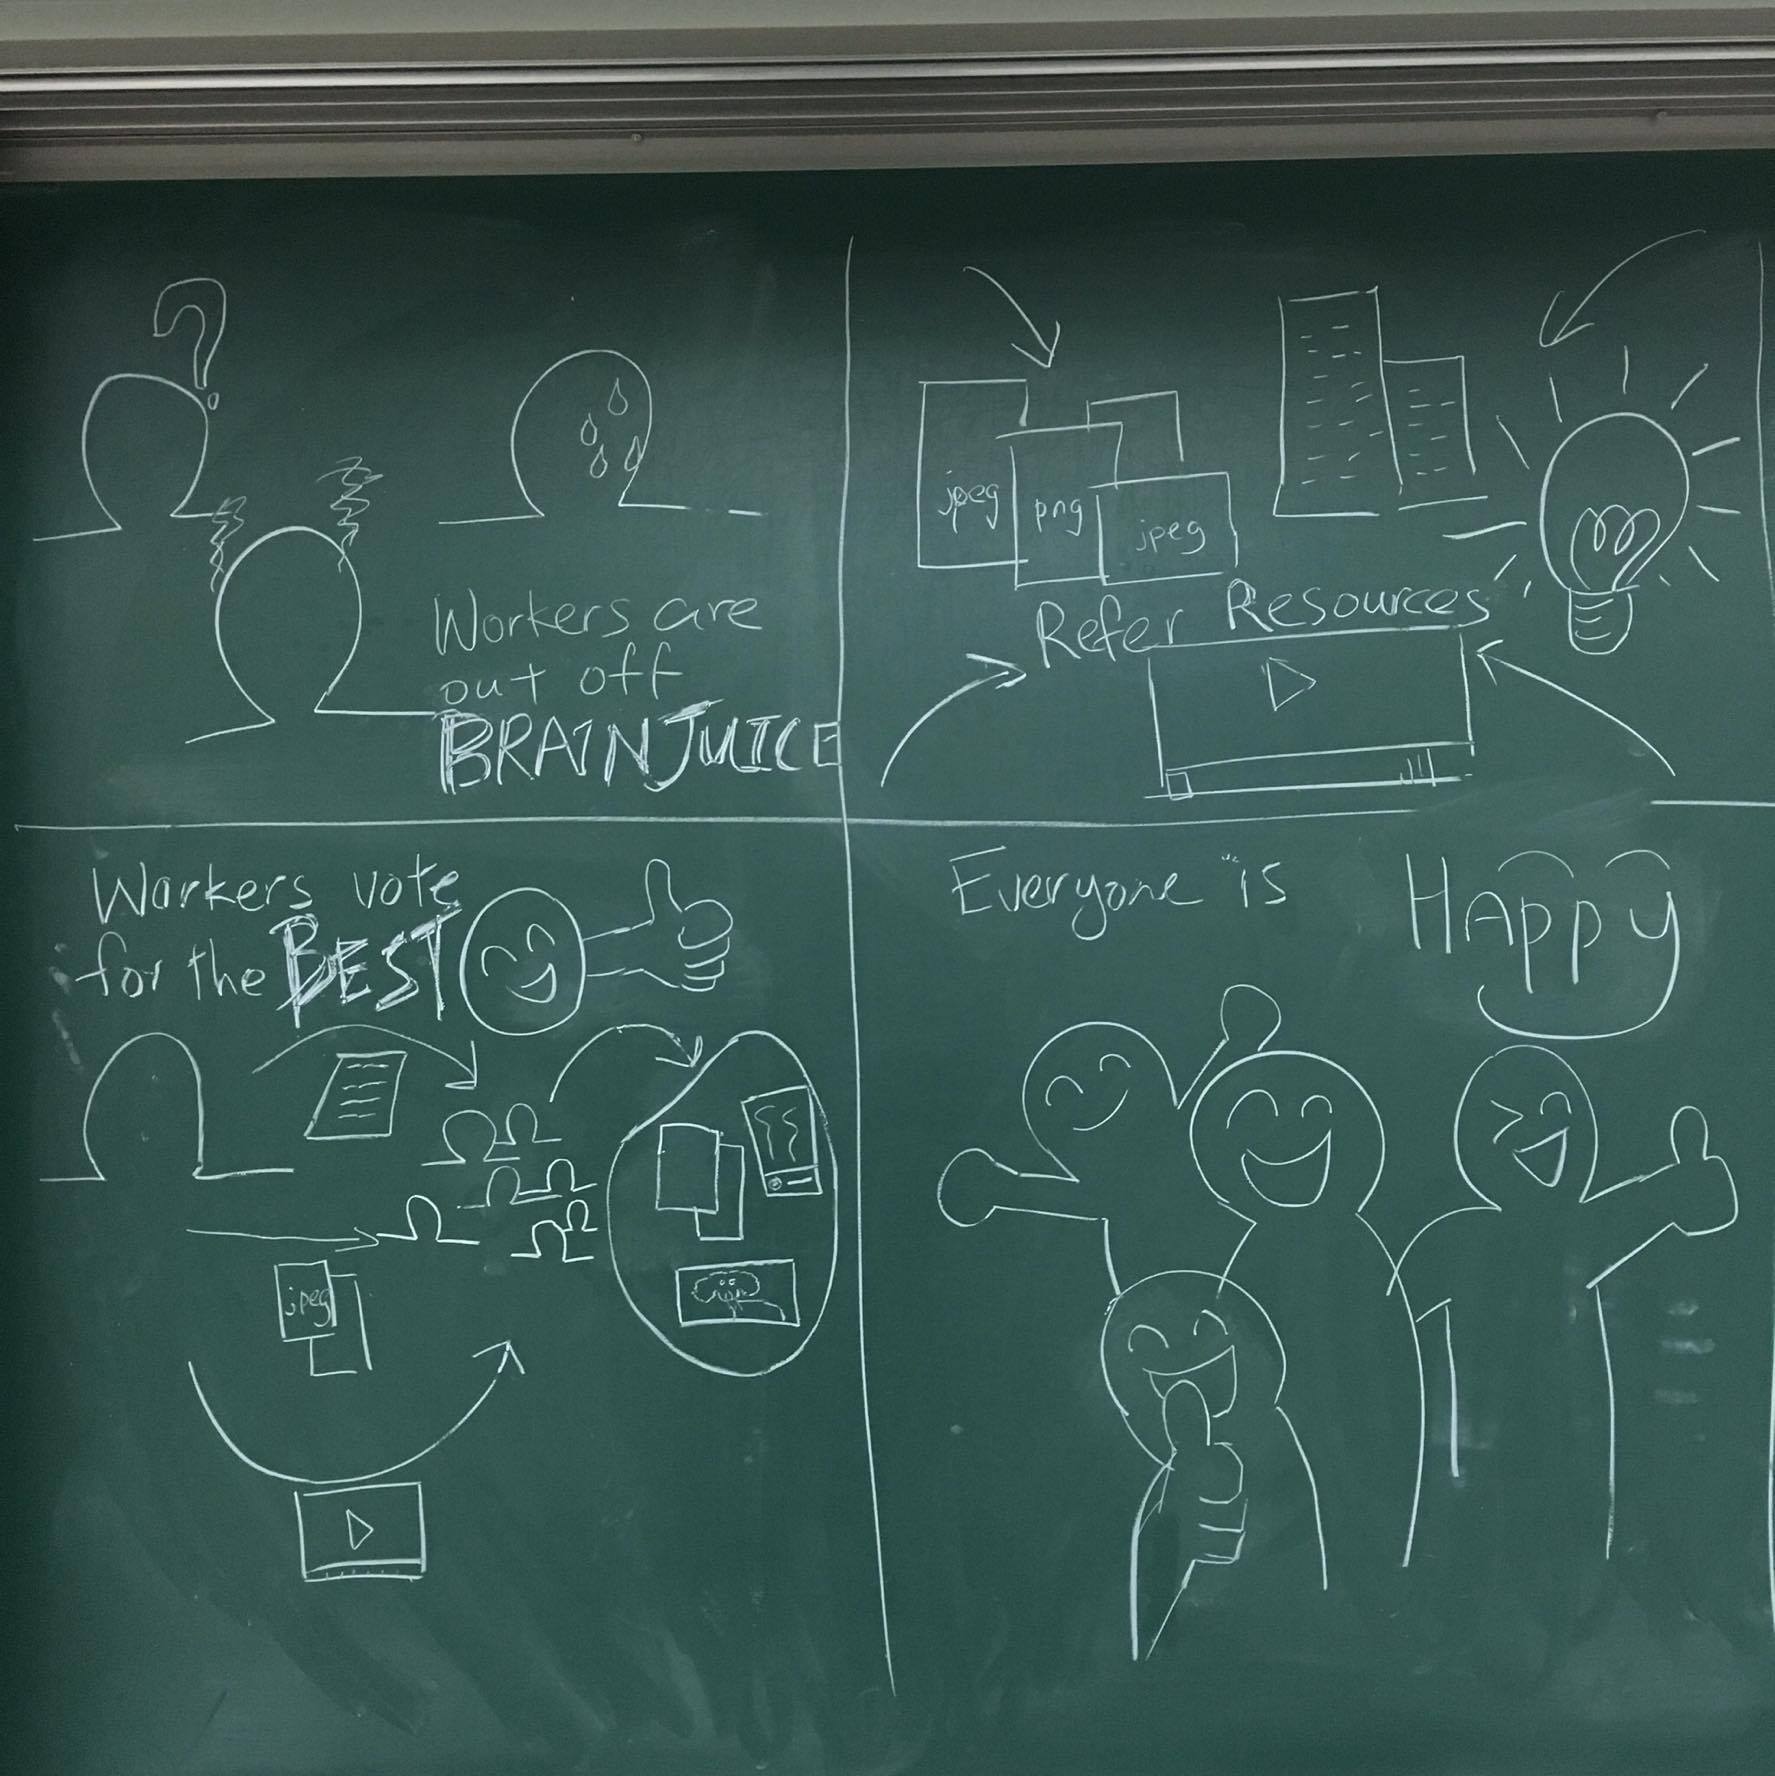 Workers are
out off
BRAINJUICE
jpeg
png
jpeg
Refer Resources
Workers vote
for the BEST
jpeg
Everyone is
Happy